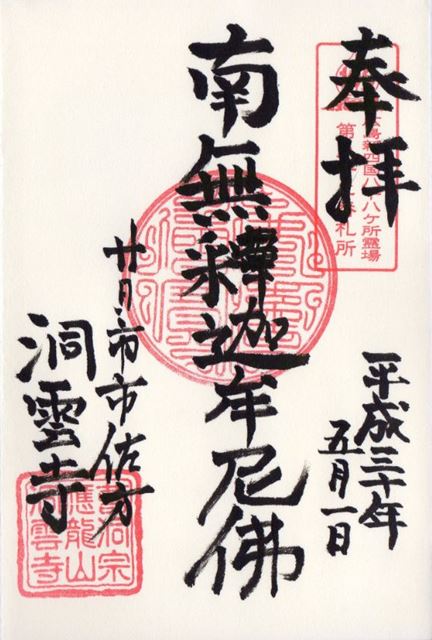 奉拝
広島新四国八十八ヶ所霊場
札所
平成三十年
五月一日
南無釋迦牟尼佛
廿日市市佐方
洞雲寺
曹洞宗
應龍山
洞雲寺